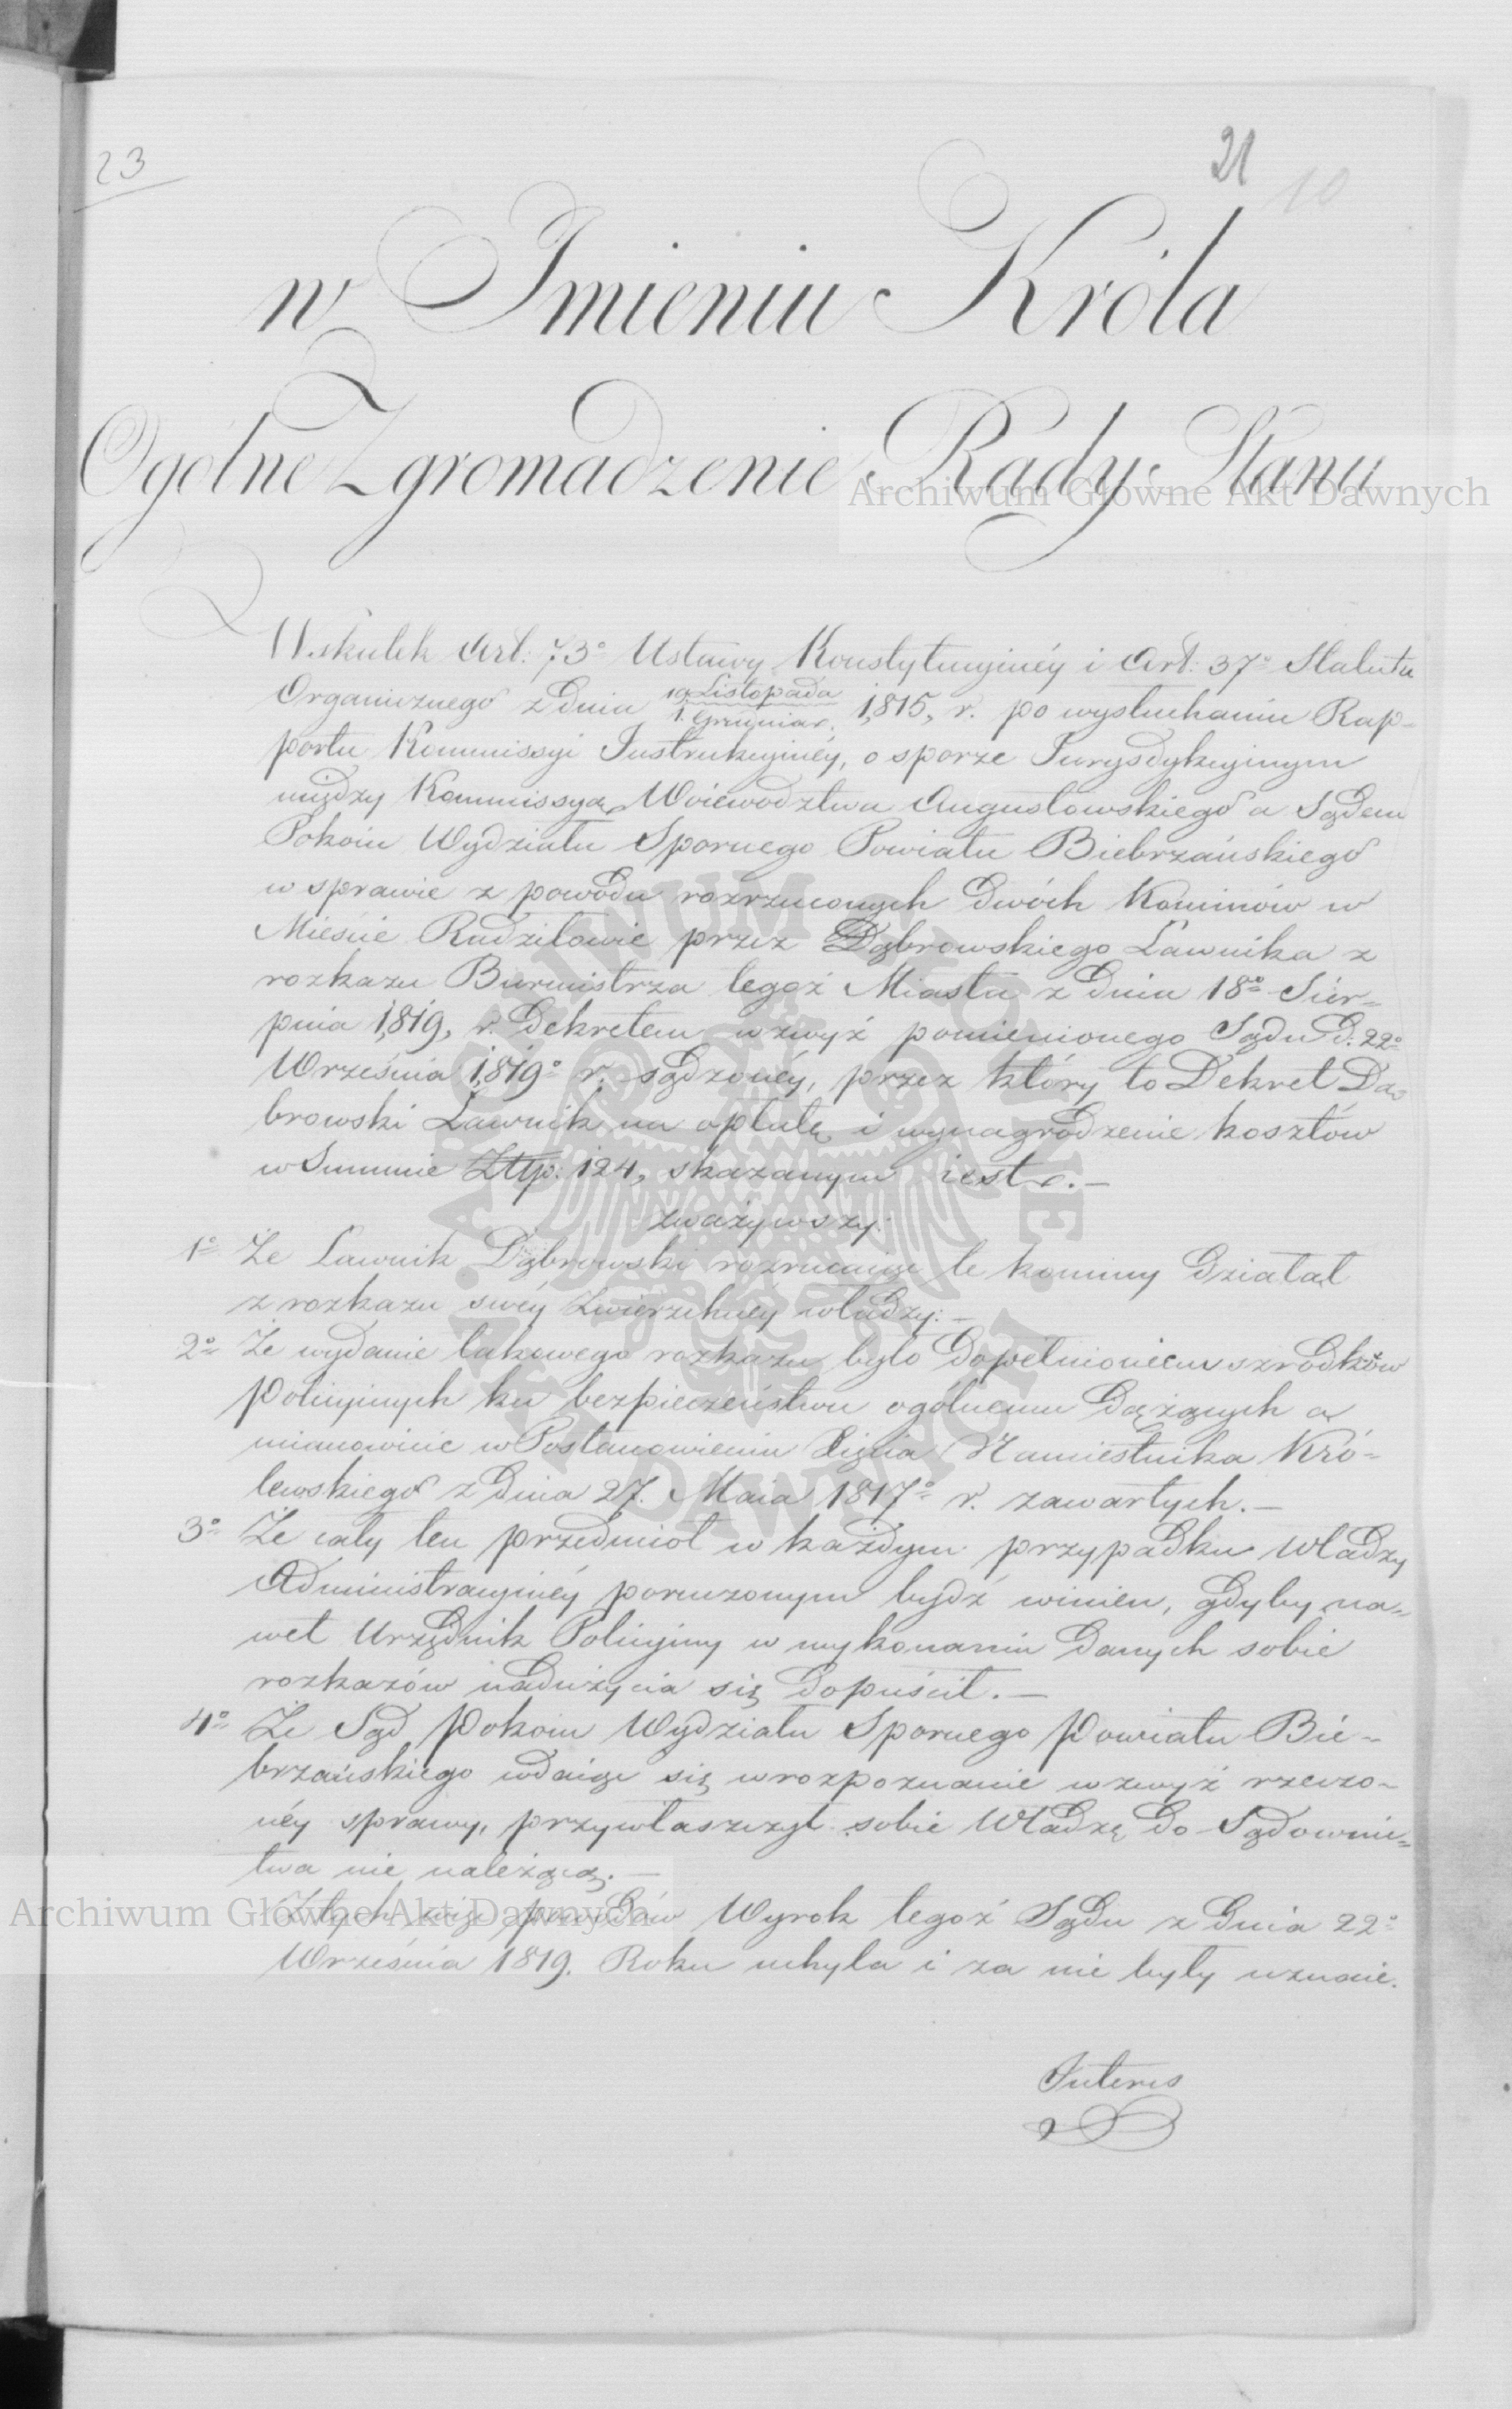 23
21
10
w Imieniu Króla
Ogólne Zgromadzenie Rady Stanu
Archiwum Główne Akt Dawnych
Wskutek Art: 73º Ustawy Konstytucyinéy i Art: 37º Statutu
Organicznego z Dnia 19 Listopada / 1. Grudnia r. 1,815, r. po wysłuchaniu Rap-
portu Kommissyi Instrukcyinéy, o sporze Jurysdykcyinym
między Kommissyą Woiewództwa Augustowskiego a Sądem
Pokoiu Wydziału Spornego Powiatu Biebrzańskiego
w sprawie z powodu rozrzuconych dwóch Kominów w
Mieście Rudziłowie przez Dąbrowskiego Ławnika z
rozkazu Burmistrza tegoż Miasta z Dnia 18º Sier-
pnia 1,819, r. Dekretem wzwyż pomienionego Sądu D. 22º
Września 1,819º r. sądzonéy, przez który to Dekret Dą-
browski Ławnik na opłatę i wynagrodzenie kosztów
w Summie Złtp: 124, skazanym iest.-
zważywszy:
1º Że Ławnik Dąbrowski rozrucaiąc te kominy działał
z rozkazu swéy Zwierzchnéy władzy:-
2º Że wydanie takowego rozkazu było dopełnieniem szrodków
Policyinych ku bezpieczeństwu ogólnemu dążących a
mianowicie w Postanowieniu Xięcia Namiestnika Kró-
lewskiego z Dnia 27. Maia 1817º r. zawartych.-
3º Że cały ten przedmiot w każdym przypadku Władzy
Administracyinéy poruczonym bydź winien, gdyby na-
wet Urzędnik Policyiny w wykonaniu danych sobie
rozkazów nadużycia się dopuścił.-
4º Że Sąd Pokoiu Wydziału Spornego Powiatu Bie-
brzańskiego wdaiąc się w rozpoznanie wzwyż rzeczo-
néy sprawy, przywłaszczył sobie Władzę do Sądownic-
twa nie należącą.-
Archiwum Główne Akt Dawnych
Z tych więc powodów Wyrok tegoż Sądu z Dnia 22º
Września 1819. Roku uchyla i za nie były uznaie.